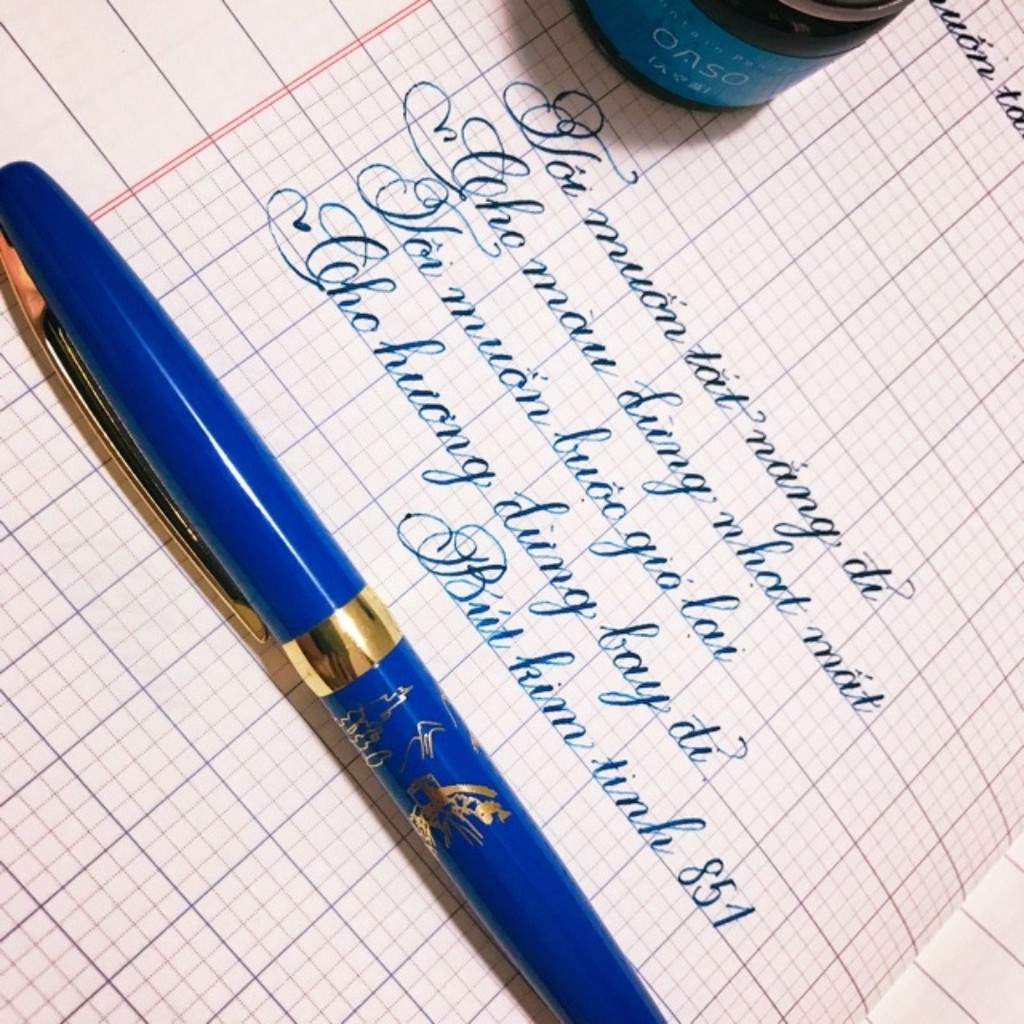 OASO
Tôi muốn tắt nắng đi
Cho màu đừng nhạt mất
Tôi muốn buộc gió lại
Cho hương đừng bay đi
Bút kim tinh 851